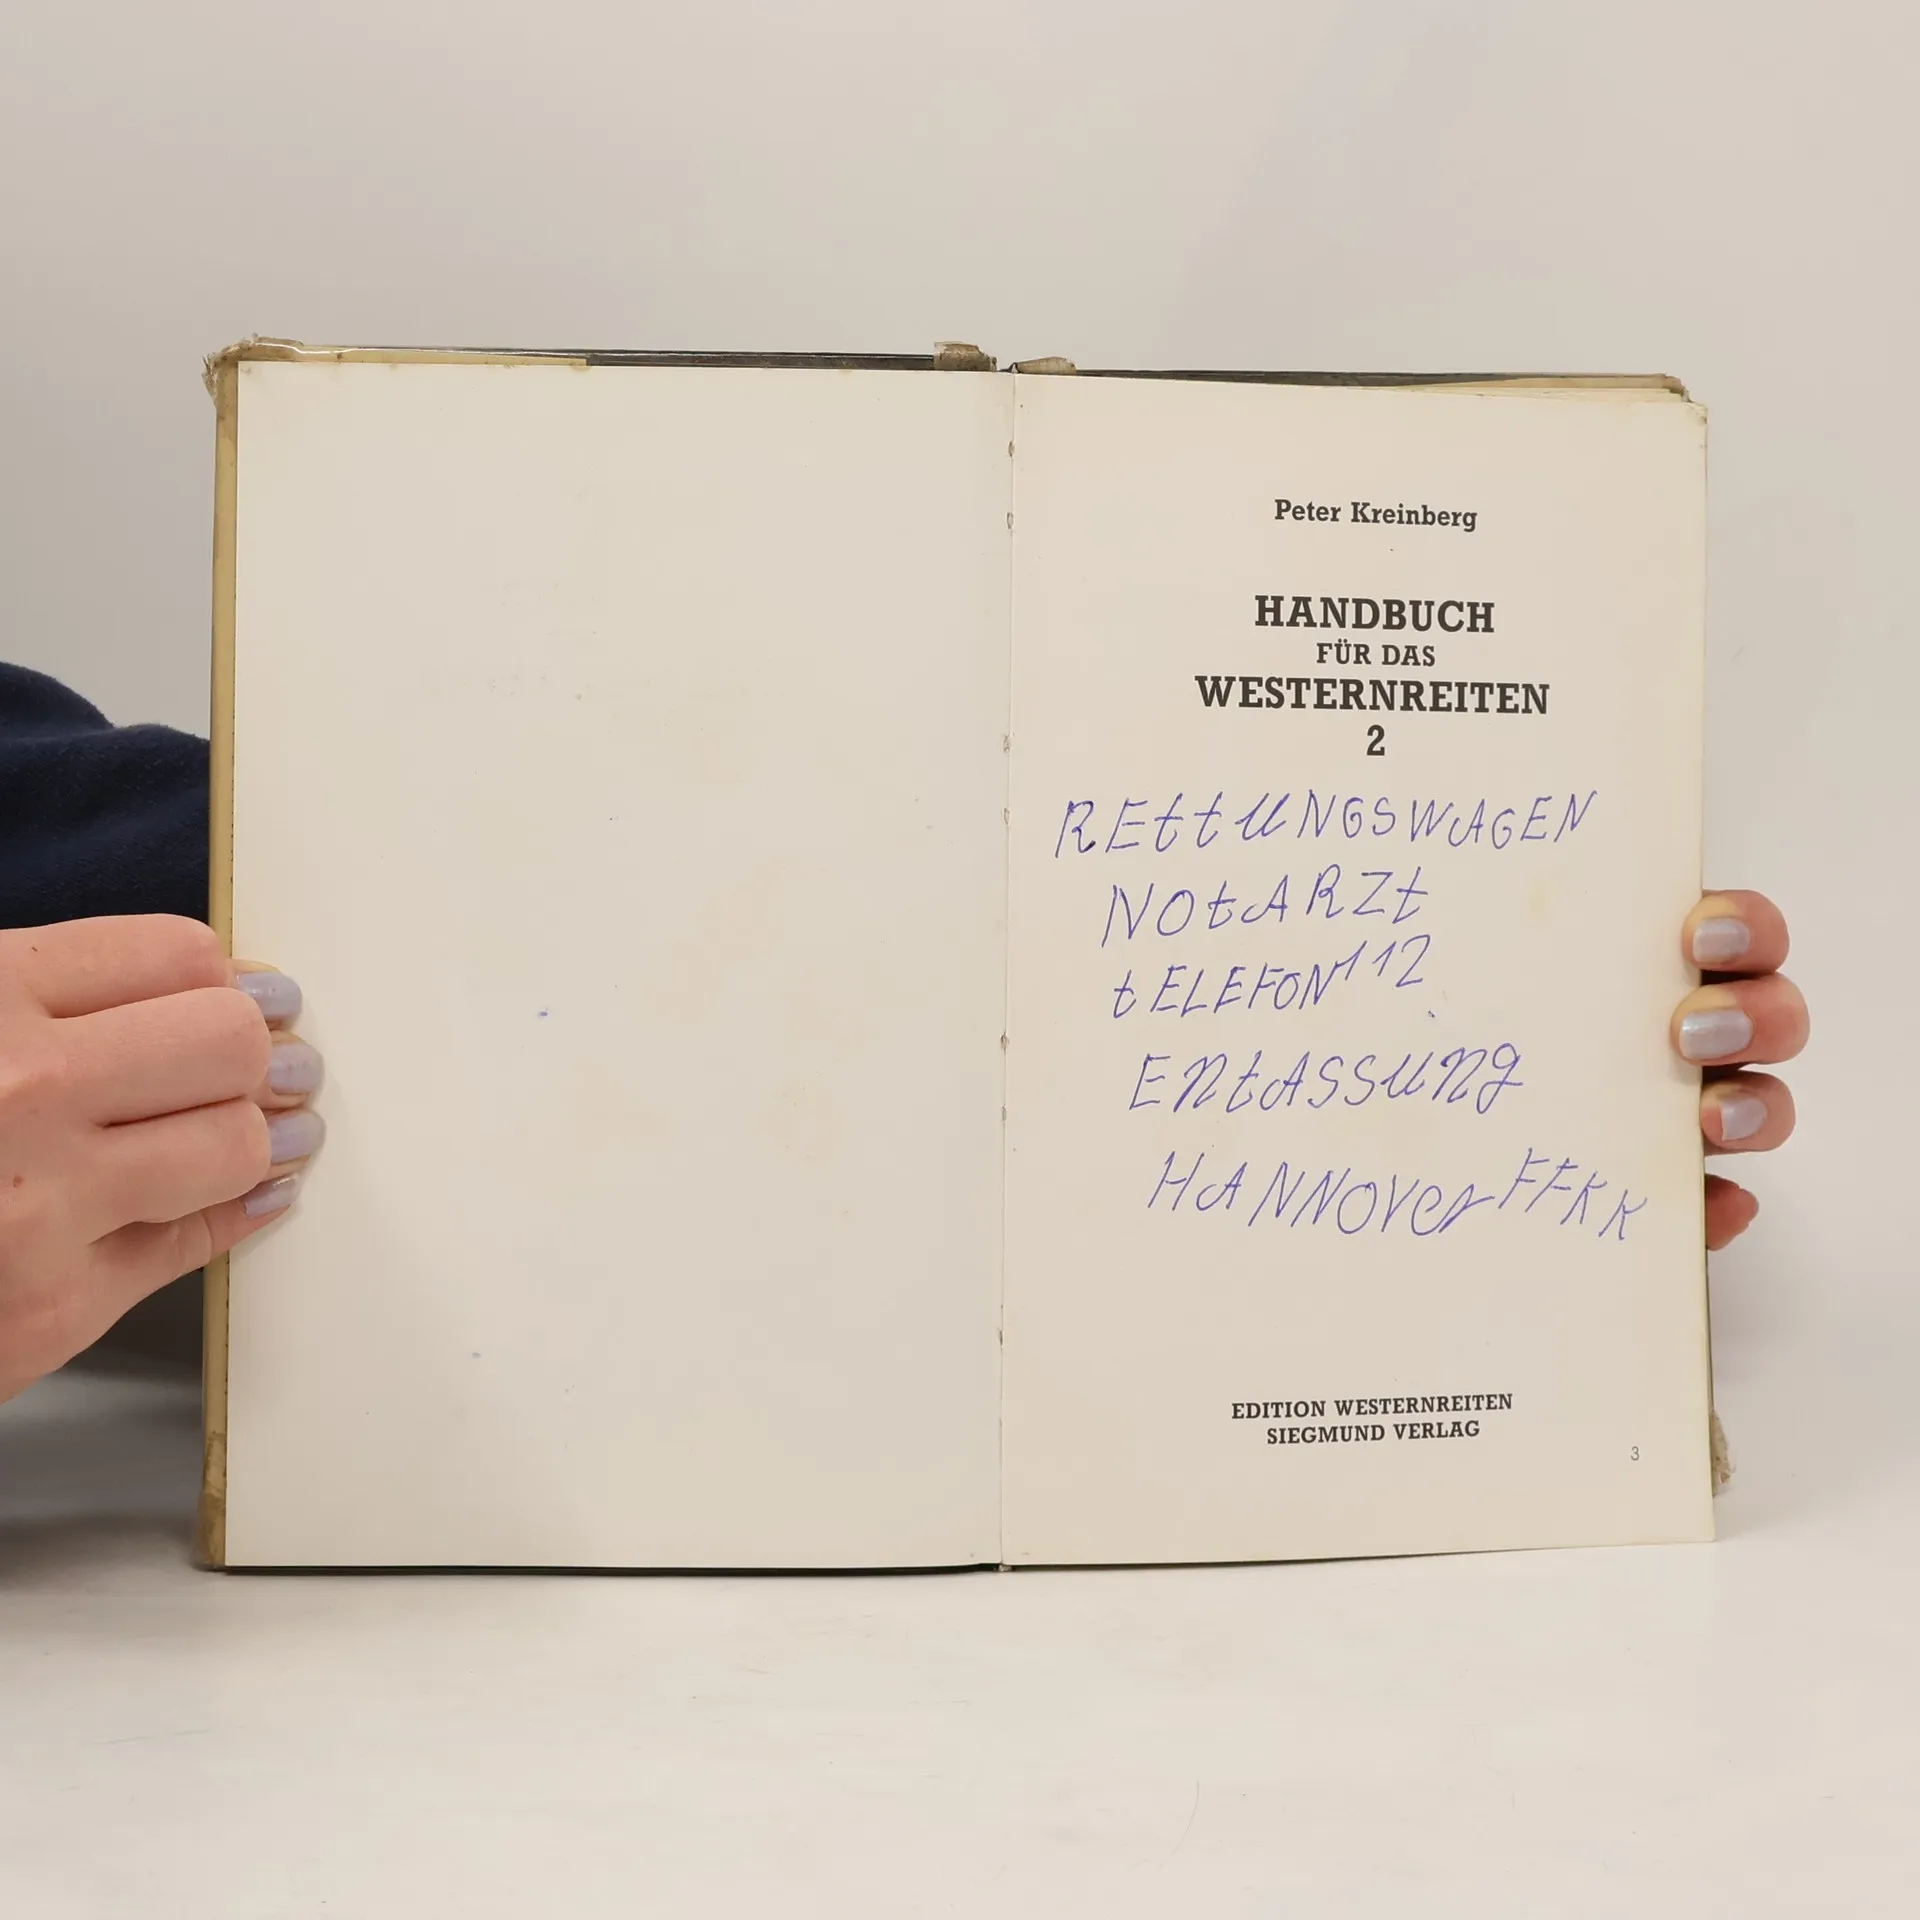 Peter Kreinberg
HANDBUCH
FÜR DAS
WESTERNREITEN
2
REttUNGSWAGEN
NOtARZt
tELEFON 112
ENtASSUNg
HANNOVer FFKK
EDITION WESTERNREITEN
SIEGMUND VERLAG
3